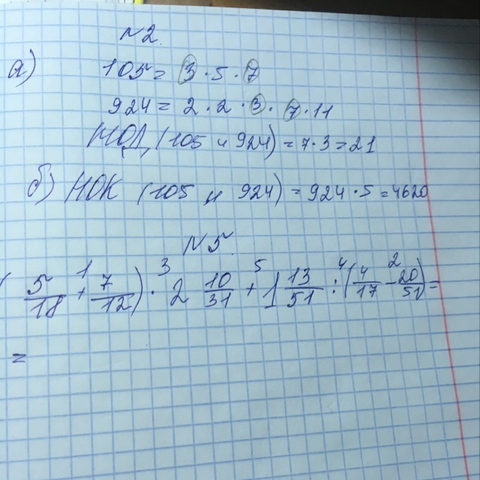 №2.
а) 105 = 3 · 5 · 7
924 = 2 · 2 · 3 · 7 · 11
НОД (105 и 924) = 7 · 3 = 21
б) НОК (105 и 924) = 924 · 5 = 4620
№5.
( 5/18 + 7/12 ) · 2 10/31 + 1 13/51 : ( 4/17 - 20/51 ) =
1 3 5 4 2
=